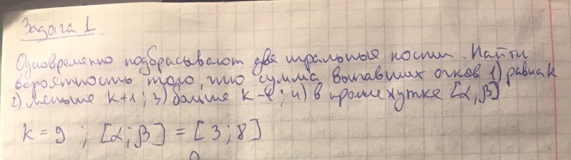 Задача 1
Одновременно подбрасывают две игральные кости. Найти
вероятность того, что сумма выпавших очков 1) равна k
2) меньше k+1; 3) больше k-1; 4) в промежутке [α, β]
k = 9 ; [α; β] = [3; 8]